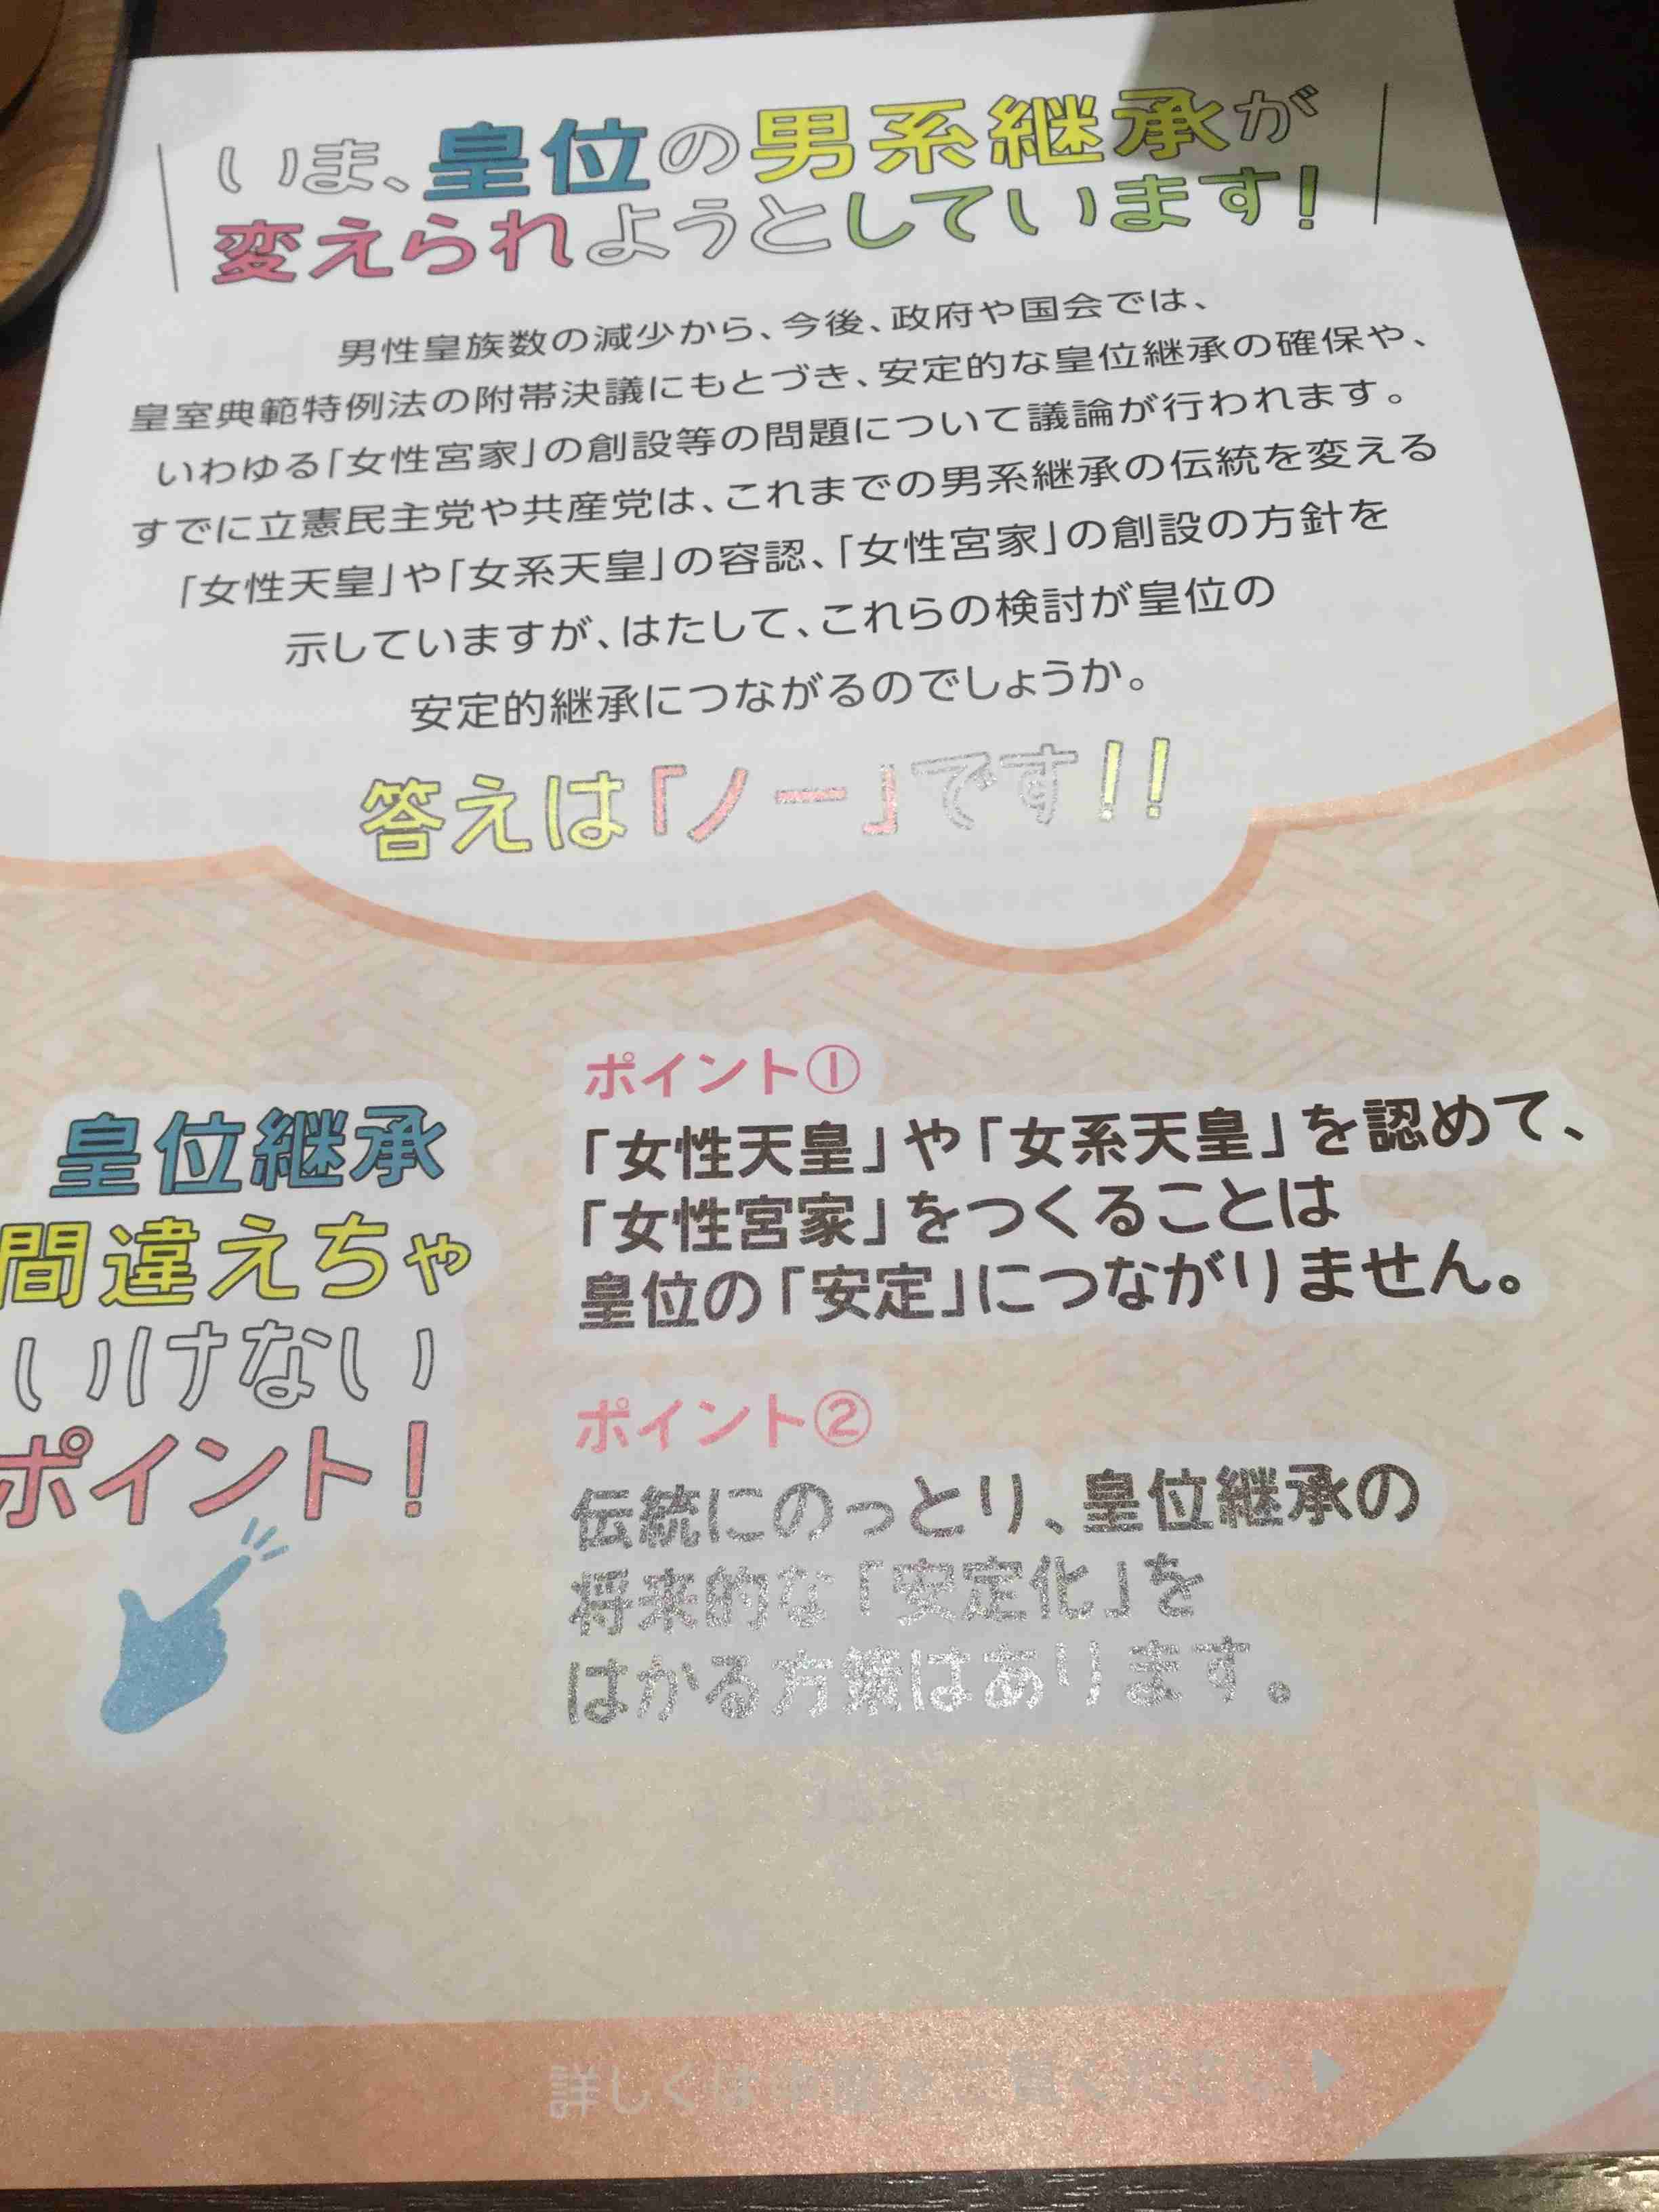 いま、皇位の男系継承が
変えられようとしています!
男性皇族数の減少から、今後、政府や国会では、
皇室典範特例法の附帯決議にもとづき、安定的な皇位継承の確保や、
いわゆる「女性宮家」の創設等の問題について議論が行われます。
すでに立憲民主党や共産党は、これまでの男系継承の伝統を変える
「女性天皇」や「女系天皇」の容認、「女性宮家」の創設の方針を
示していますが、はたして、これらの検討が皇位の
安定的継承につながるのでしょうか。
答えは「ノー」です!!
皇位継承
間違えちゃ
いけない
ポイント!
ポイント①
「女性天皇」や「女系天皇」を認めて、
「女性宮家」をつくることは
皇位の「安定」につながりません。
ポイント②
伝統にのっとり、皇位継承の
将来的な「安定化」を
はかる方策はあります。
詳しくは中面をご覧ください▶